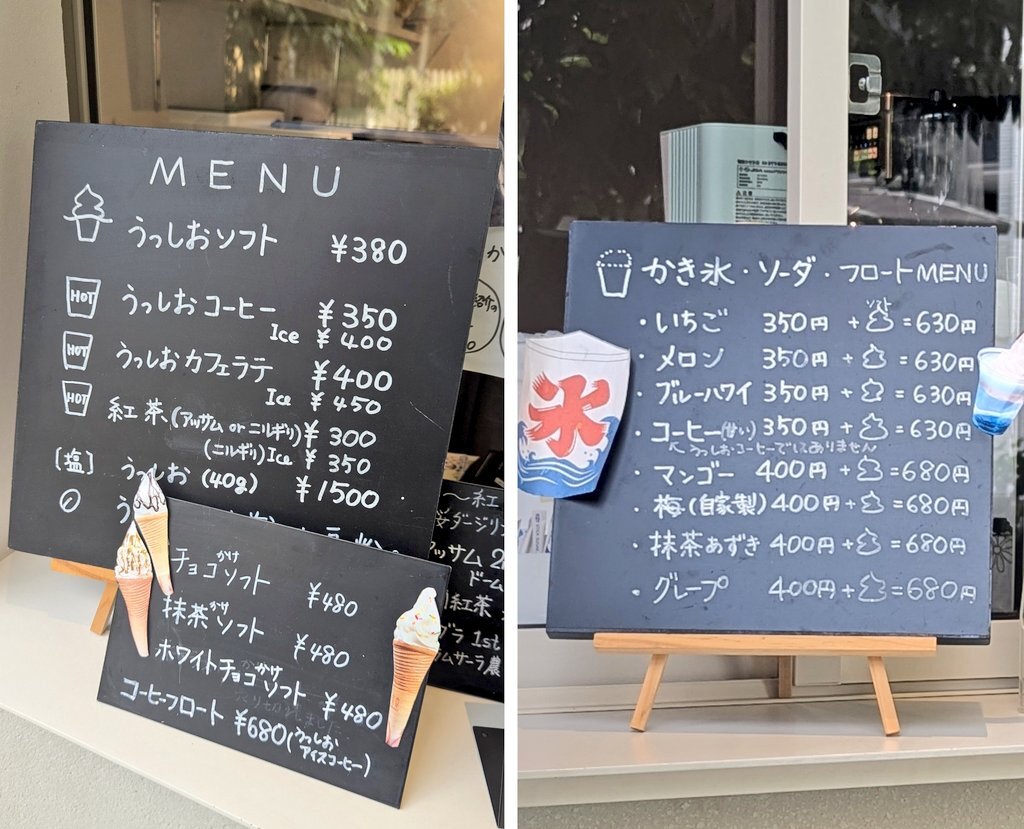 MENU
うっしおソフト ¥380
HOT うっしおコーヒー ¥350
Ice ¥400
HOT うっしおカフェラテ ¥400
Ice ¥450
HOT 紅茶(アッサム or ニルギリ) ¥300
(ニルギリ) Ice ¥350
[塩] うっしお (40g) ¥1500
う
チョコかけソフト ¥480
抹茶かけソフト ¥480
ホワイトチョコかけソフト ¥480
コーヒーフロート ¥680(うっしおアイスコーヒー)
〜紅
ダージリ
アッサム
ドーム
紅茶
グラ 1st
ムサーラ農
かき氷・ソーダ・フロートMENU
ソフト
・いちご 350円 + = 630円
・メロン 350円 + = 630円
・ブルーハワイ 350円 + = 630円
・コーヒー(甘い) 350円 + = 630円
うっしおコーヒーではありません
・マンゴー 400円 + = 680円
・梅(自家製) 400円 + = 680円
・抹茶あずき 400円 + = 680円
・グレープ 400円 + = 680円
氷